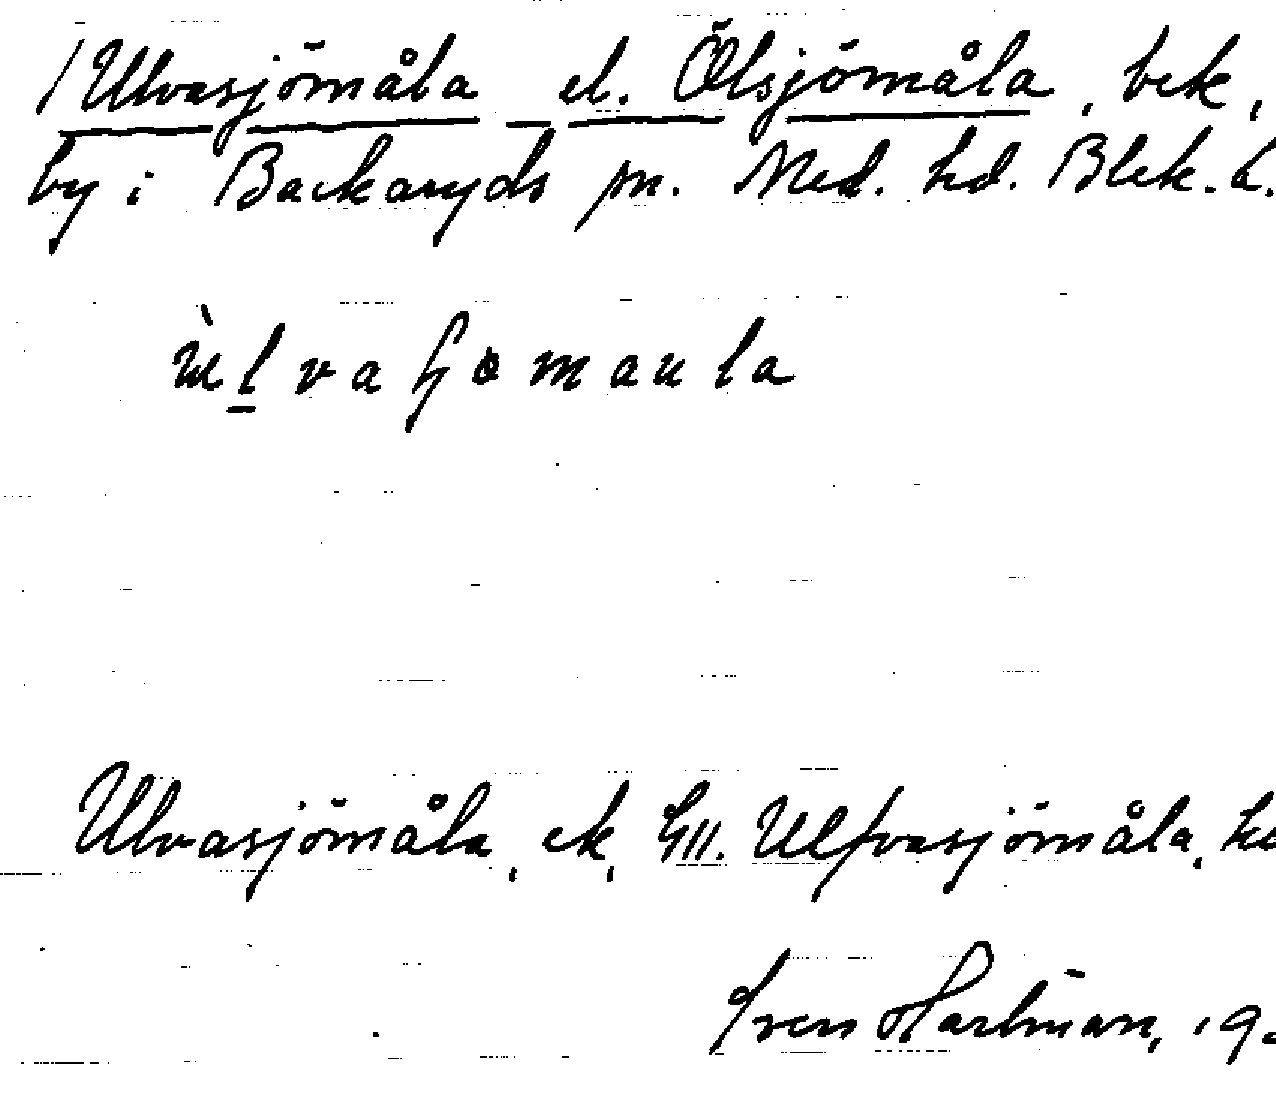 /Ulvasjömåla el. Ölsjömåla, bek,
by i Backaryds sn. Med. hd. Blek. l.
ùlvaɧomaula
Ulvasjömåla, ek, GII. Ulfvasjömåla,
Sven Hartman, 19